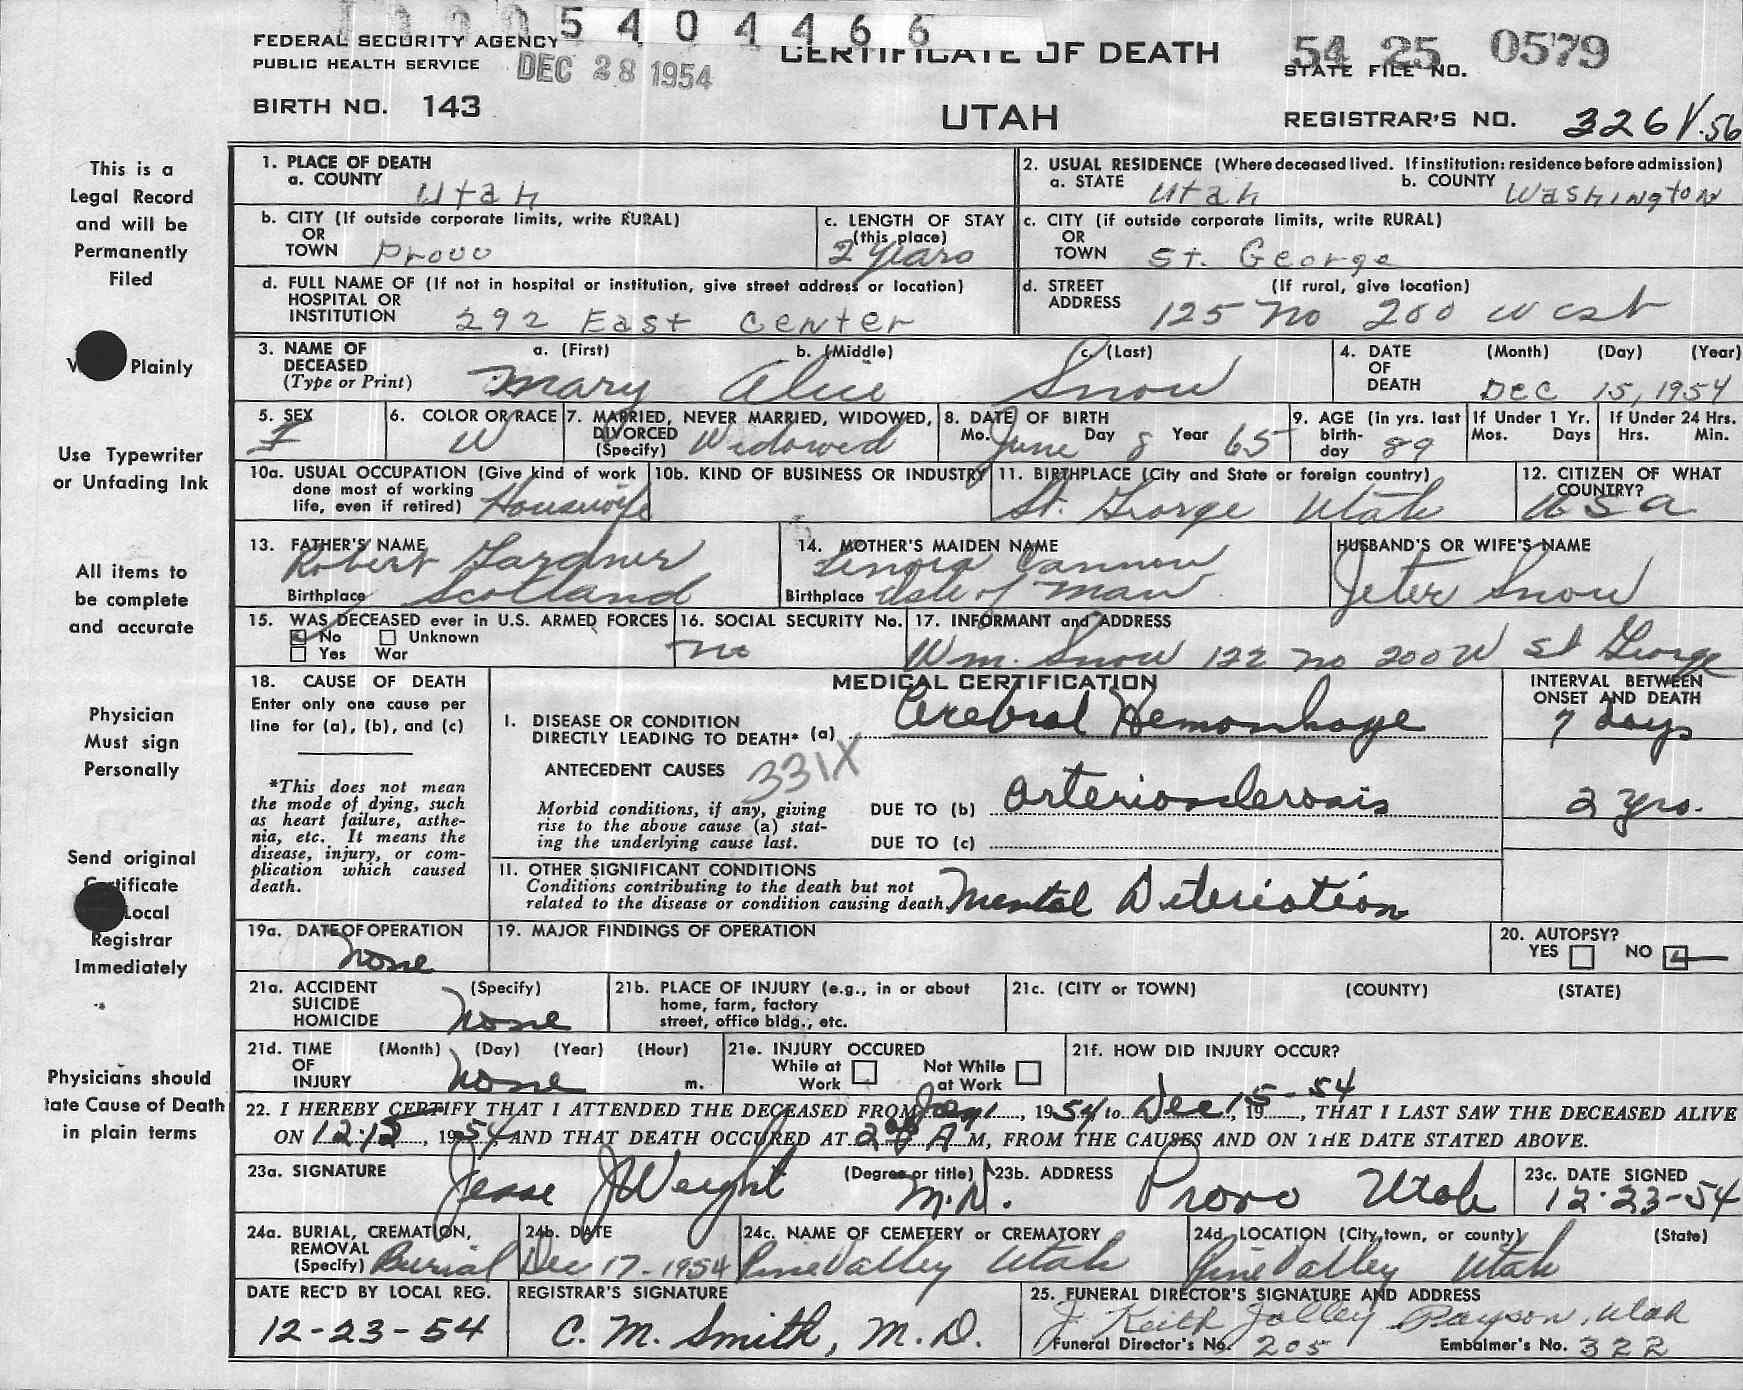 5 4 0 4 4 6 6
FEDERAL SECURITY AGENCY
PUBLIC HEALTH SERVICE
DEC 28 1954
CERTIFICATE OF DEATH
54 25 0579
STATE FILE NO.
BIRTH NO. 143
UTAH
REGISTRAR'S NO. 326 V.56
This is a
Legal Record
and will be
Permanently
Filed
Plainly
Use Typewriter
or Unfading Ink
All items to
be complete
and accurate
Physician
Must sign
Personally
Send original
Certificate
Local
Registrar
Immediately
Physicians should
tate Cause of Death
in plain terms
1. PLACE OF DEATH
a. COUNTY Utah
2. USUAL RESIDENCE (Where deceased lived. If institution: residence before admission)
a. STATE Utah b. COUNTY Washington
b. CITY (If outside corporate limits, write RURAL)
OR
TOWN Provo
c. LENGTH OF STAY
(this place)
2 years
c. CITY (if outside corporate limits, write RURAL)
OR
TOWN St. George
d. FULL NAME OF (If not in hospital or institution, give street address or location)
HOSPITAL OR
INSTITUTION 292 East Center
d. STREET (If rural, give location)
ADDRESS 125 No 200 West
3. NAME OF a. (First) b. (Middle) c. (Last)
DECEASED
(Type or Print) Mary Alice Snow
4. DATE (Month) (Day) (Year)
OF
DEATH Dec 15, 1954
5. SEX
F
6. COLOR OR RACE
W
7. MARRIED, NEVER MARRIED, WIDOWED,
DIVORCED
(Specify) Widowed
8. DATE OF BIRTH
Mo. June Day 8 Year 65
9. AGE (in yrs. last
birth-
day 89
If Under 1 Yr.
Mos. Days
If Under 24 Hrs.
Hrs. Min.
10a. USUAL OCCUPATION (Give kind of work
done most of working
life, even if retired) Housewife
10b. KIND OF BUSINESS OR INDUSTRY
11. BIRTHPLACE (City and State or foreign country)
St. George Utah
12. CITIZEN OF WHAT
COUNTRY?
USA
13. FATHER'S NAME
Robert Gardner
Birthplace Scotland
14. MOTHER'S MAIDEN NAME
Lenora Cannon
Birthplace Isle of Man
HUSBAND'S OR WIFE'S NAME
Jeter Snow
15. WAS DECEASED ever in U.S. ARMED FORCES
No Unknown
Yes War
16. SOCIAL SECURITY No.
no
17. INFORMANT and ADDRESS
Wm. Snow 122 no 200 W St George
18. CAUSE OF DEATH
Enter only one cause per
line for (a), (b), and (c)
*This does not mean
the mode of dying, such
as heart failure, asthe-
nia, etc. It means the
disease, injury, or com-
plication which caused
death.
MEDICAL CERTIFICATION
INTERVAL BETWEEN
ONSET AND DEATH
I. DISEASE OR CONDITION
DIRECTLY LEADING TO DEATH* (a) Cerebral Hemorrhage 7 days
ANTECEDENT CAUSES 331X
Morbid conditions, if any, giving
rise to the above cause (a) stat-
ing the underlying cause last.
DUE TO (b) Arteriosclerosis 2 yrs.
DUE TO (c)
II. OTHER SIGNIFICANT CONDITIONS
Conditions contributing to the death but not
related to the disease or condition causing death. Mental Deteriation
19a. DATE OF OPERATION
None
19. MAJOR FINDINGS OF OPERATION
20. AUTOPSY?
YES NO
21a. ACCIDENT (Specify)
SUICIDE
HOMICIDE None
21b. PLACE OF INJURY (e.g., in or about
home, farm, factory
street, office bldg., etc.
21c. (CITY or TOWN) (COUNTY) (STATE)
21d. TIME (Month) (Day) (Year) (Hour)
OF
INJURY None m.
21e. INJURY OCCURED
While at Work
Not While at Work
21f. HOW DID INJURY OCCUR?
22. I HEREBY CERTIFY THAT I ATTENDED THE DECEASED FROM Jan 1, 1954 to Dec 15-54, 19, THAT I LAST SAW THE DECEASED ALIVE
ON 12-12, 1954 AND THAT DEATH OCCURED AT A M, FROM THE CAUSES AND ON THE DATE STATED ABOVE.
23a. SIGNATURE Jesse J Weight (Degree or title) M.D.
23b. ADDRESS Provo Utah
23c. DATE SIGNED
12-23-54
24a. BURIAL, CREMATION,
REMOVAL
(Specify) Burial
24b. DATE
Dec 17-1954
24c. NAME OF CEMETERY or CREMATORY
Pine Valley Utah
24d. LOCATION (City, town, or county) (State)
Pine Valley Utah
DATE REC'D BY LOCAL REG.
12-23-54
REGISTRAR'S SIGNATURE
C. M. Smith, M.D.
25. FUNERAL DIRECTOR'S SIGNATURE AND ADDRESS
J Keith Jolley Payson, Utah
Funeral Director's No. 205 Embalmer's No. 322